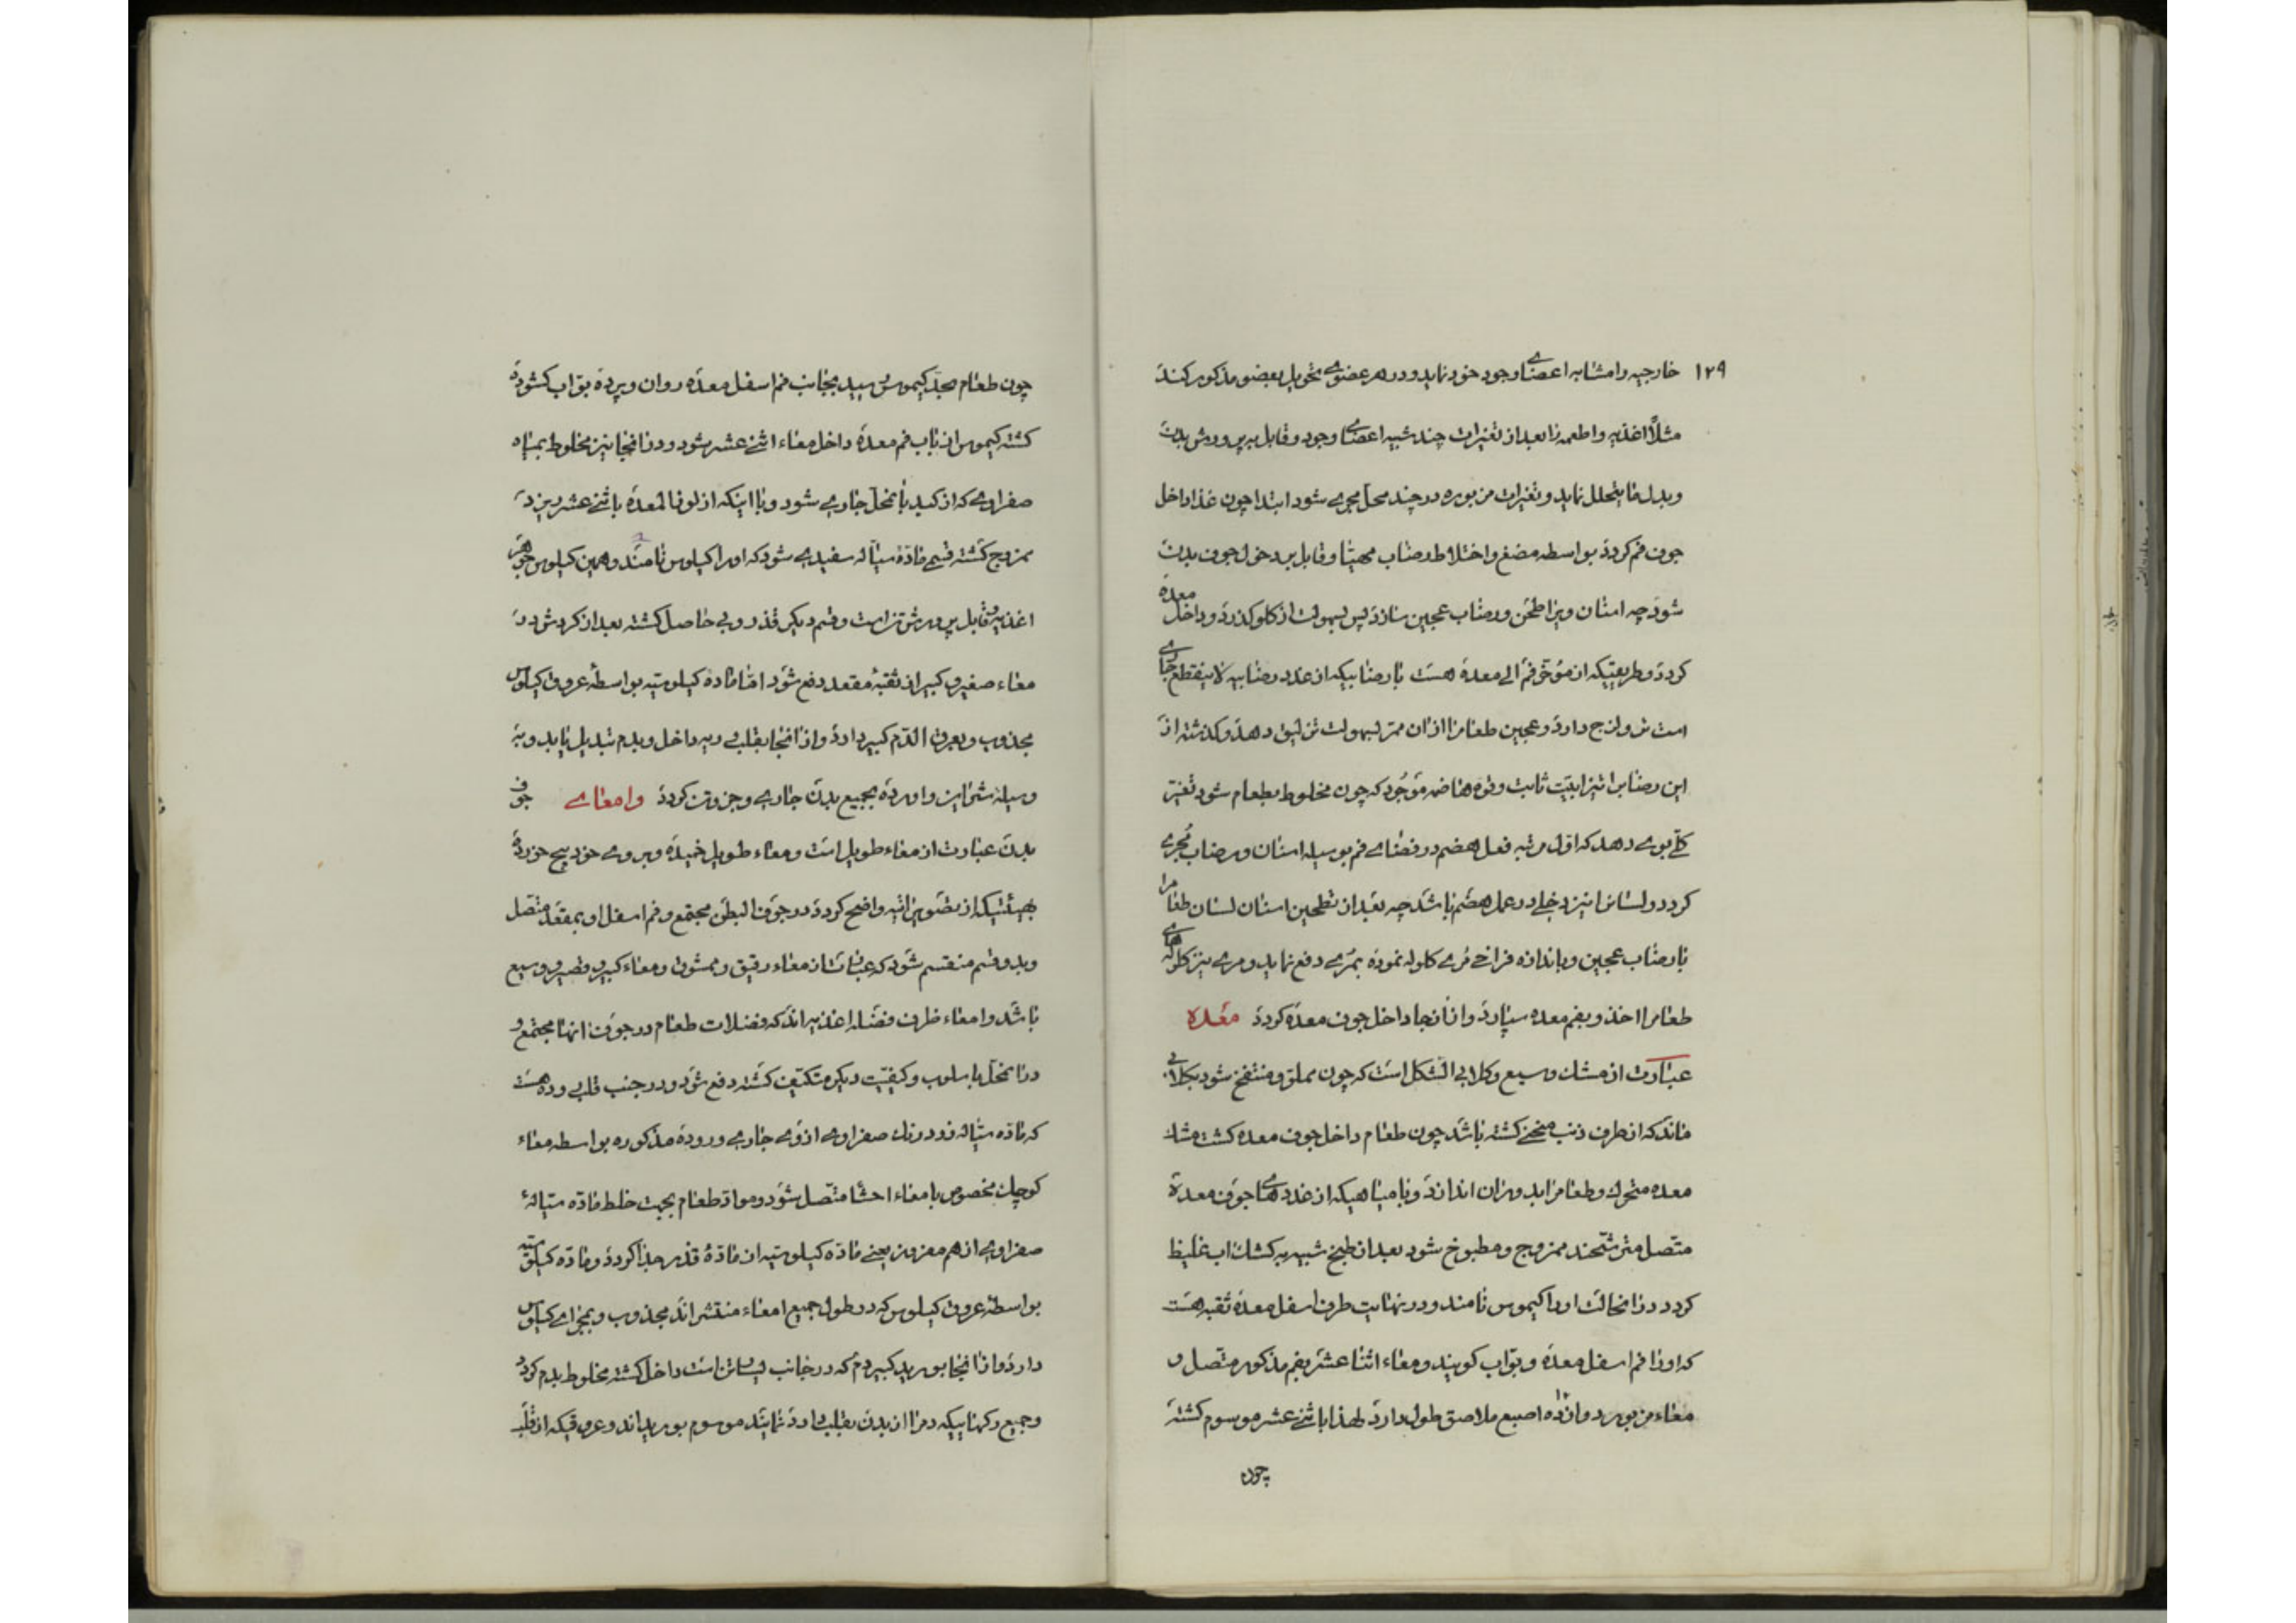 ۱۲۹ خارجیه را مشابه اعضای وجود خود نماید و در هر عضوی تحویل بعضو مذکور کند
مثلاً اغذیه و اطعمه را بعد از تغیرات چند شبیه اعضای وجود و قابل به پرورش بدن
و بدل ما یتحلل نماید و تغیرات مزبوره در چند محل مجری شود ابتدا چون غذا داخل
جوف فم کردد بواسطه مضغ و اختلاط رضاب مهیّا و قابل بر دخول جوف بدن
شود چه اسنان ویرا طحن و رضاب عجین سازد پس بسهولت از کلو کذرد و داخل معده
کردد و طریقیکه از مؤخّر فم الی معده هست با رضابیکه از غدد رضابیه لاینقطع جاری
است تر و لزج دارد و عجین طعامرا از ان ممر بسهولت تزلیق دهد و کذشته از
این رضابرا تیزابیّت ثابت و قوه هاضمه موجود که چون مخلوط بطعام شود تغیّر
کلّی بوی دهد که اوّل مرتبه فعل هضم در فضای فم بوسیله اسنان و رضاب مجری
کردد و لسانرا نیز دخلی در عمل هضم باشد چه بعد از تطحین اسنان لسان طعامرا
با رضاب عجین و باندازه فراخی مری کلوله نموده بمری دفع نماید و مری نیز کلوله‌های
طعامرا اخذ و بفم معده سپارد و از انجا داخل جوف معده کردد معده
عبارت از مشک وسیع و کلابی الشکل است که چون مملو و منتفخ شود بکلابی
ماند که از طرف ذنب منحنی کشته باشد چون طعام داخل جوف معده کشت مشک
معده متحرک و طعامرا بدوران اندازد و با میاهیکه از غدد‌های جوف معده
متصل مترشّحند ممزوج و مطبوخ شود بعد از طبخ شبیه به کشکاب غلیظ
کردد در انحالت او را کیموس نامند و در نهایت طرف اسفل معده ثقبه هست
که او را فم اسفل معده و بوّاب کویند و معاء اثنا عشر بفم مذکور متصل و
معاء مزبور دوازده اصبع ملاصق طول دارد لهذا باثنی عشر موسوم کشته
چون
چون طعام بحد کیموس رسید بجانب فم اسفل معده روان و پرده بوّاب کشوده
کشته کیموس از باب فم معده داخل معاء اثنی عشر شود و در انجا نیز مخلوط بمیاه
صفراوی که از کبد بانمحل جاری شود و با اینکه از لوفا لمعده باثنی عشر ریزد
ممزوج کشته قسمی مادّه سیّاله سفیدی شود که او را کیلوس نامند و همین کیلوس جوهر
اغذیه و قابل پرورش تن است و قسم دیکر قذر و بی حاصل کشته بعد از کردش در
معاء صغیر و کبیر از ثقبه مقعد دفع شود امّا مادهٔ کیلوسیّه بواسطهٔ عروق کیلوس
مجذوب و بعرق الدّم کبیر دارد و از انجا بقلب ریه داخل و بدم تبدیل یابد و به
وسیله شرائین و اورده بجمیع بدن جاری و جزو تن کردد وامعای جوف
بدن عبارت از معاء طویل است و معاء طویل خمیده و بروی خود پیچ خورده
بهیئتیکه از تصویر اتیه واضح کردد در جوف البطن مجتمع و فم اسفل او بمقعد متصل
و بدو قسم منقسم شود که عبارتست از معاء رقیق و ممشوق و معاء کبیر و قصیر و وسیع
باشد و امعاء ظرف فضله اغذیه اند که فضلات طعام در جوف انها مجتمع و
در انمحل باسلوب و کیفیّت دیکر متکیّف کشته دفع شود و در جنب قلب روده هست
که مادّه سیّاله زرد رنک صفراوی از وی جاری و روده مذکوره بواسطه معاء
کوچک مخصوص با معاء احشا متصل شود و موادّ طعام بجهت خلط مادّه سیّالهٔ
صفراوی از هم مفروز یعنی مادّه کیلوسیّه از مادّهٔ قذر جدا کردد و مادّه کیلوسیّه
بواسطهٔ عروق کیلوس که در طول جمیع امعاء منتشر اند مجذوب و بمجرای کیلوس
دارد و از انجا بورید کبیر دم که در جانب یسار تن است داخل کشته مخلوط بدم کردد
و جمیع رکهائیکه دمرا از بدن بقلب وارد نمایند موسوم بورید اند و عروقیکه از قلب